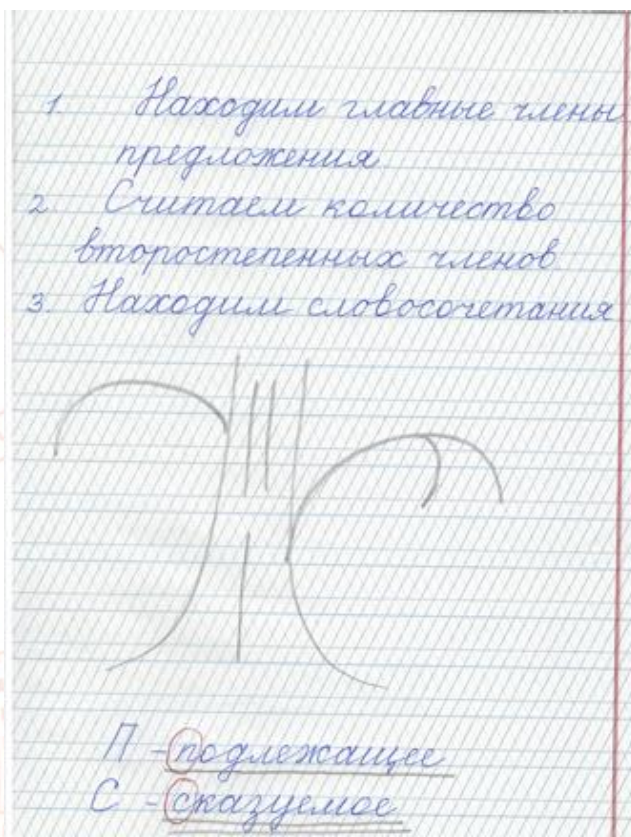 1. Находим главные члены
предложения.
2. Считаем количество
второстепенных членов.
3. Находим словосочетания
П - подлежащее
С - сказуемое